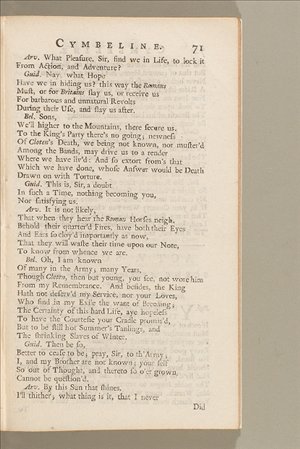 CYMBELINE. 71
Arv. What Pleasure, Sir, find we in Life, to lock it
From Action, and Adventure?
Guid. Nay, what Hope
Have we in hiding us? this way the Romans
Must, or for Britains slay us, or receive us
For barbarous and unnatural Revolts
During their Use, and slay us after.
Bel. Sons,
We'll higher to the Mountains, there secure us.
To the King's Party there's no going; newness
Of Cloten's Death, we being not known, nor muster'd
Among the Bands, may drive us to a render
Where we have liv'd: And so extort from's that
Which we have done, whose Answer would be Death
Drawn on with Torture.
Guid. This is, Sir, a doubt
In such a Time, nothing becoming you,
Nor satisfying us.
Arv. It is not likely,
That when they hear the Roman Horses neigh,
Behold their quarter'd Fires, have both their Eyes
And Ears so cloy'd importantly as now,
That they will waste their time upon our Note,
To know from whence we are.
Bel. Oh, I am known
Of many in the Army; many Years,
Though Cloten, then but young, you see, not wore him
From my Remembrance. And besides, the King
Hath not deserv'd my Service, nor your Loves,
Who find in my Exile the want of Breeding;
The Certainty of this hard Life, aye hopeless
To have the Courtesie your Cradle promis'd,
But to be still hot Summer's Tanlings, and
The shrinking Slaves of Winter.
Guid. Then be so,
Better to cease to be; pray, Sir, to th'Army;
I, and my Brother are not known; your self
So out of Thought, and thereto so o'er grown,
Cannot be question'd.
Arv. By this Sun that shines,
I'll thither; what thing is it, that I never
Did